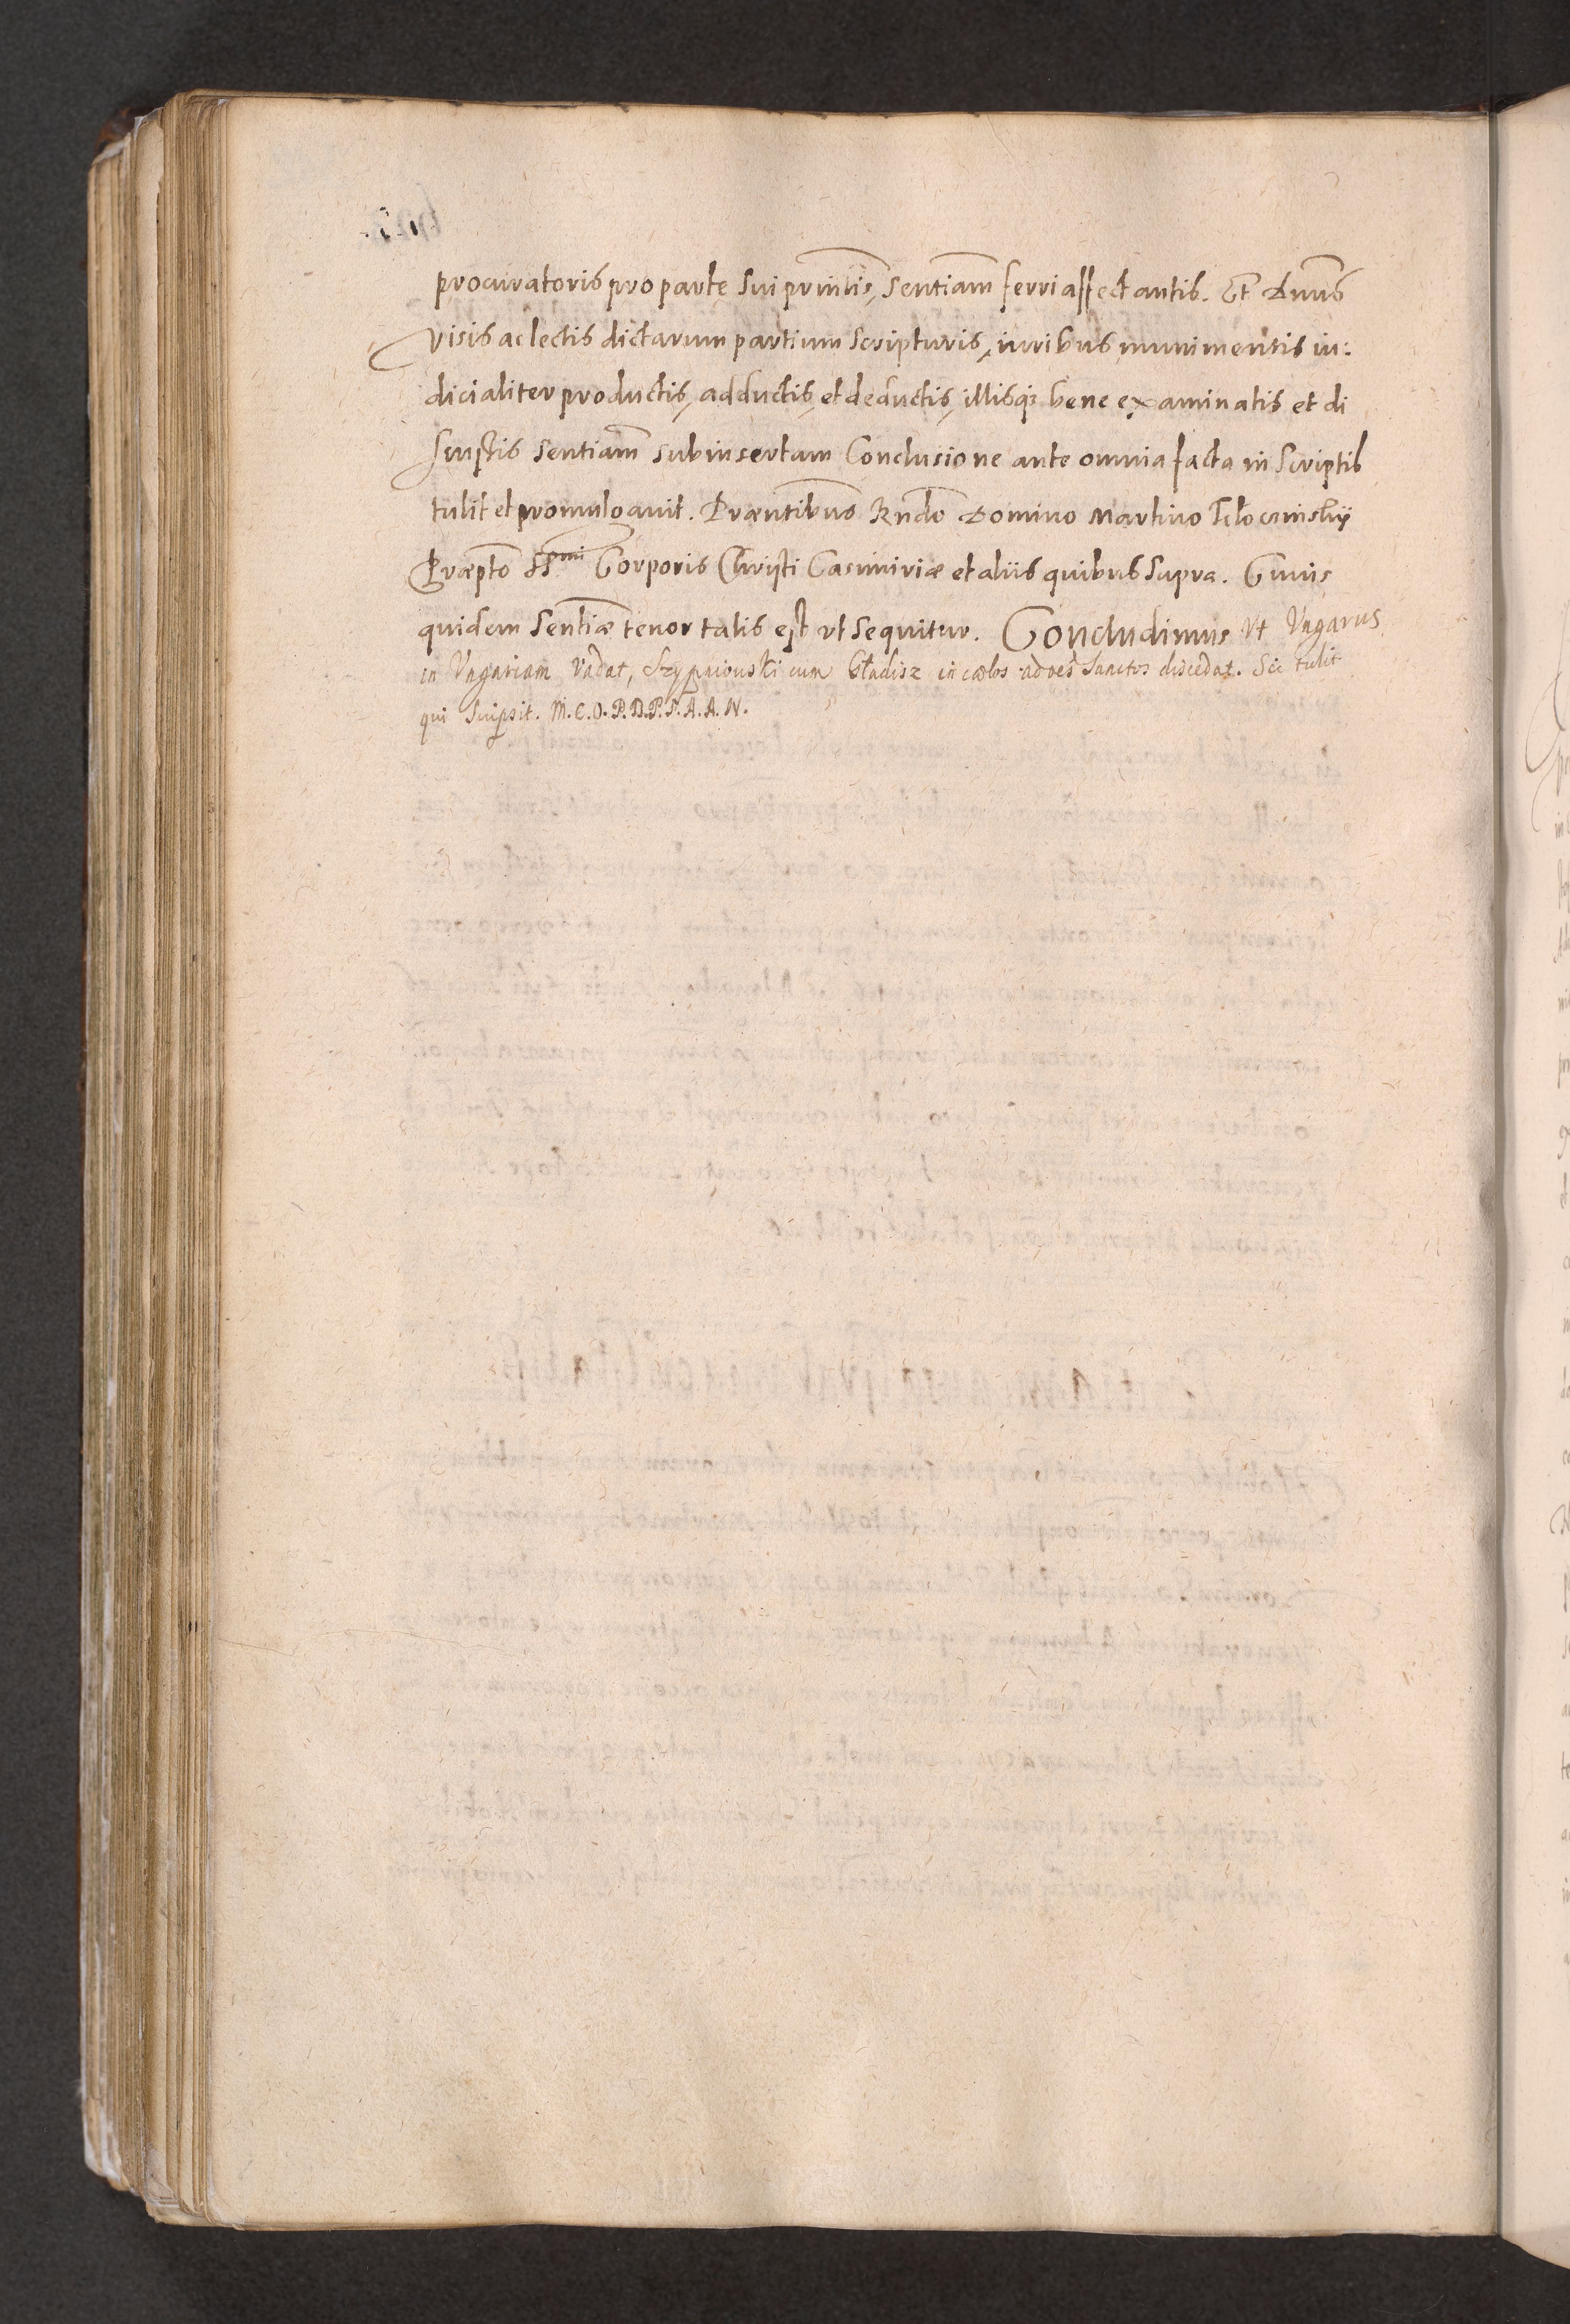 procuratoris pro parte sui prīncis, sentīam ferri affectantis. Et Dnūs
visis ac lectis dictarum partium scripturis, iuribus munimentis iu:
dicialiter productis, adductis, et deductis, illisq3 bene examinatis et di
scussis sentīam subinsertam Conclusione ante omnia facta in Scriptis
tulit et promulgavit. Præntībus Rndō Domino Martino Kłoczinskÿ
Præptō SSmi Corporis Christi Casimiriæ et aliis quibus supra. Cuius
quidem sentīæ tenor talis est ut sequitur. Concludimus Vt Vngarus
in Vngariam vadat, Szypniouski cum Gładisz in cœlos ad oēs sanctos discedat. Sic tulit
qui Scripsit. M.C.O.P.D.P.S.A.A.N.